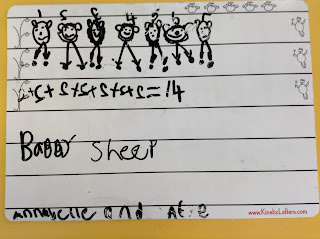 1 5 6 4 5 6 7
2+2+2+2+2+2+2=14
Baaa Sheep
annabelle and
www.KineticLetters.com